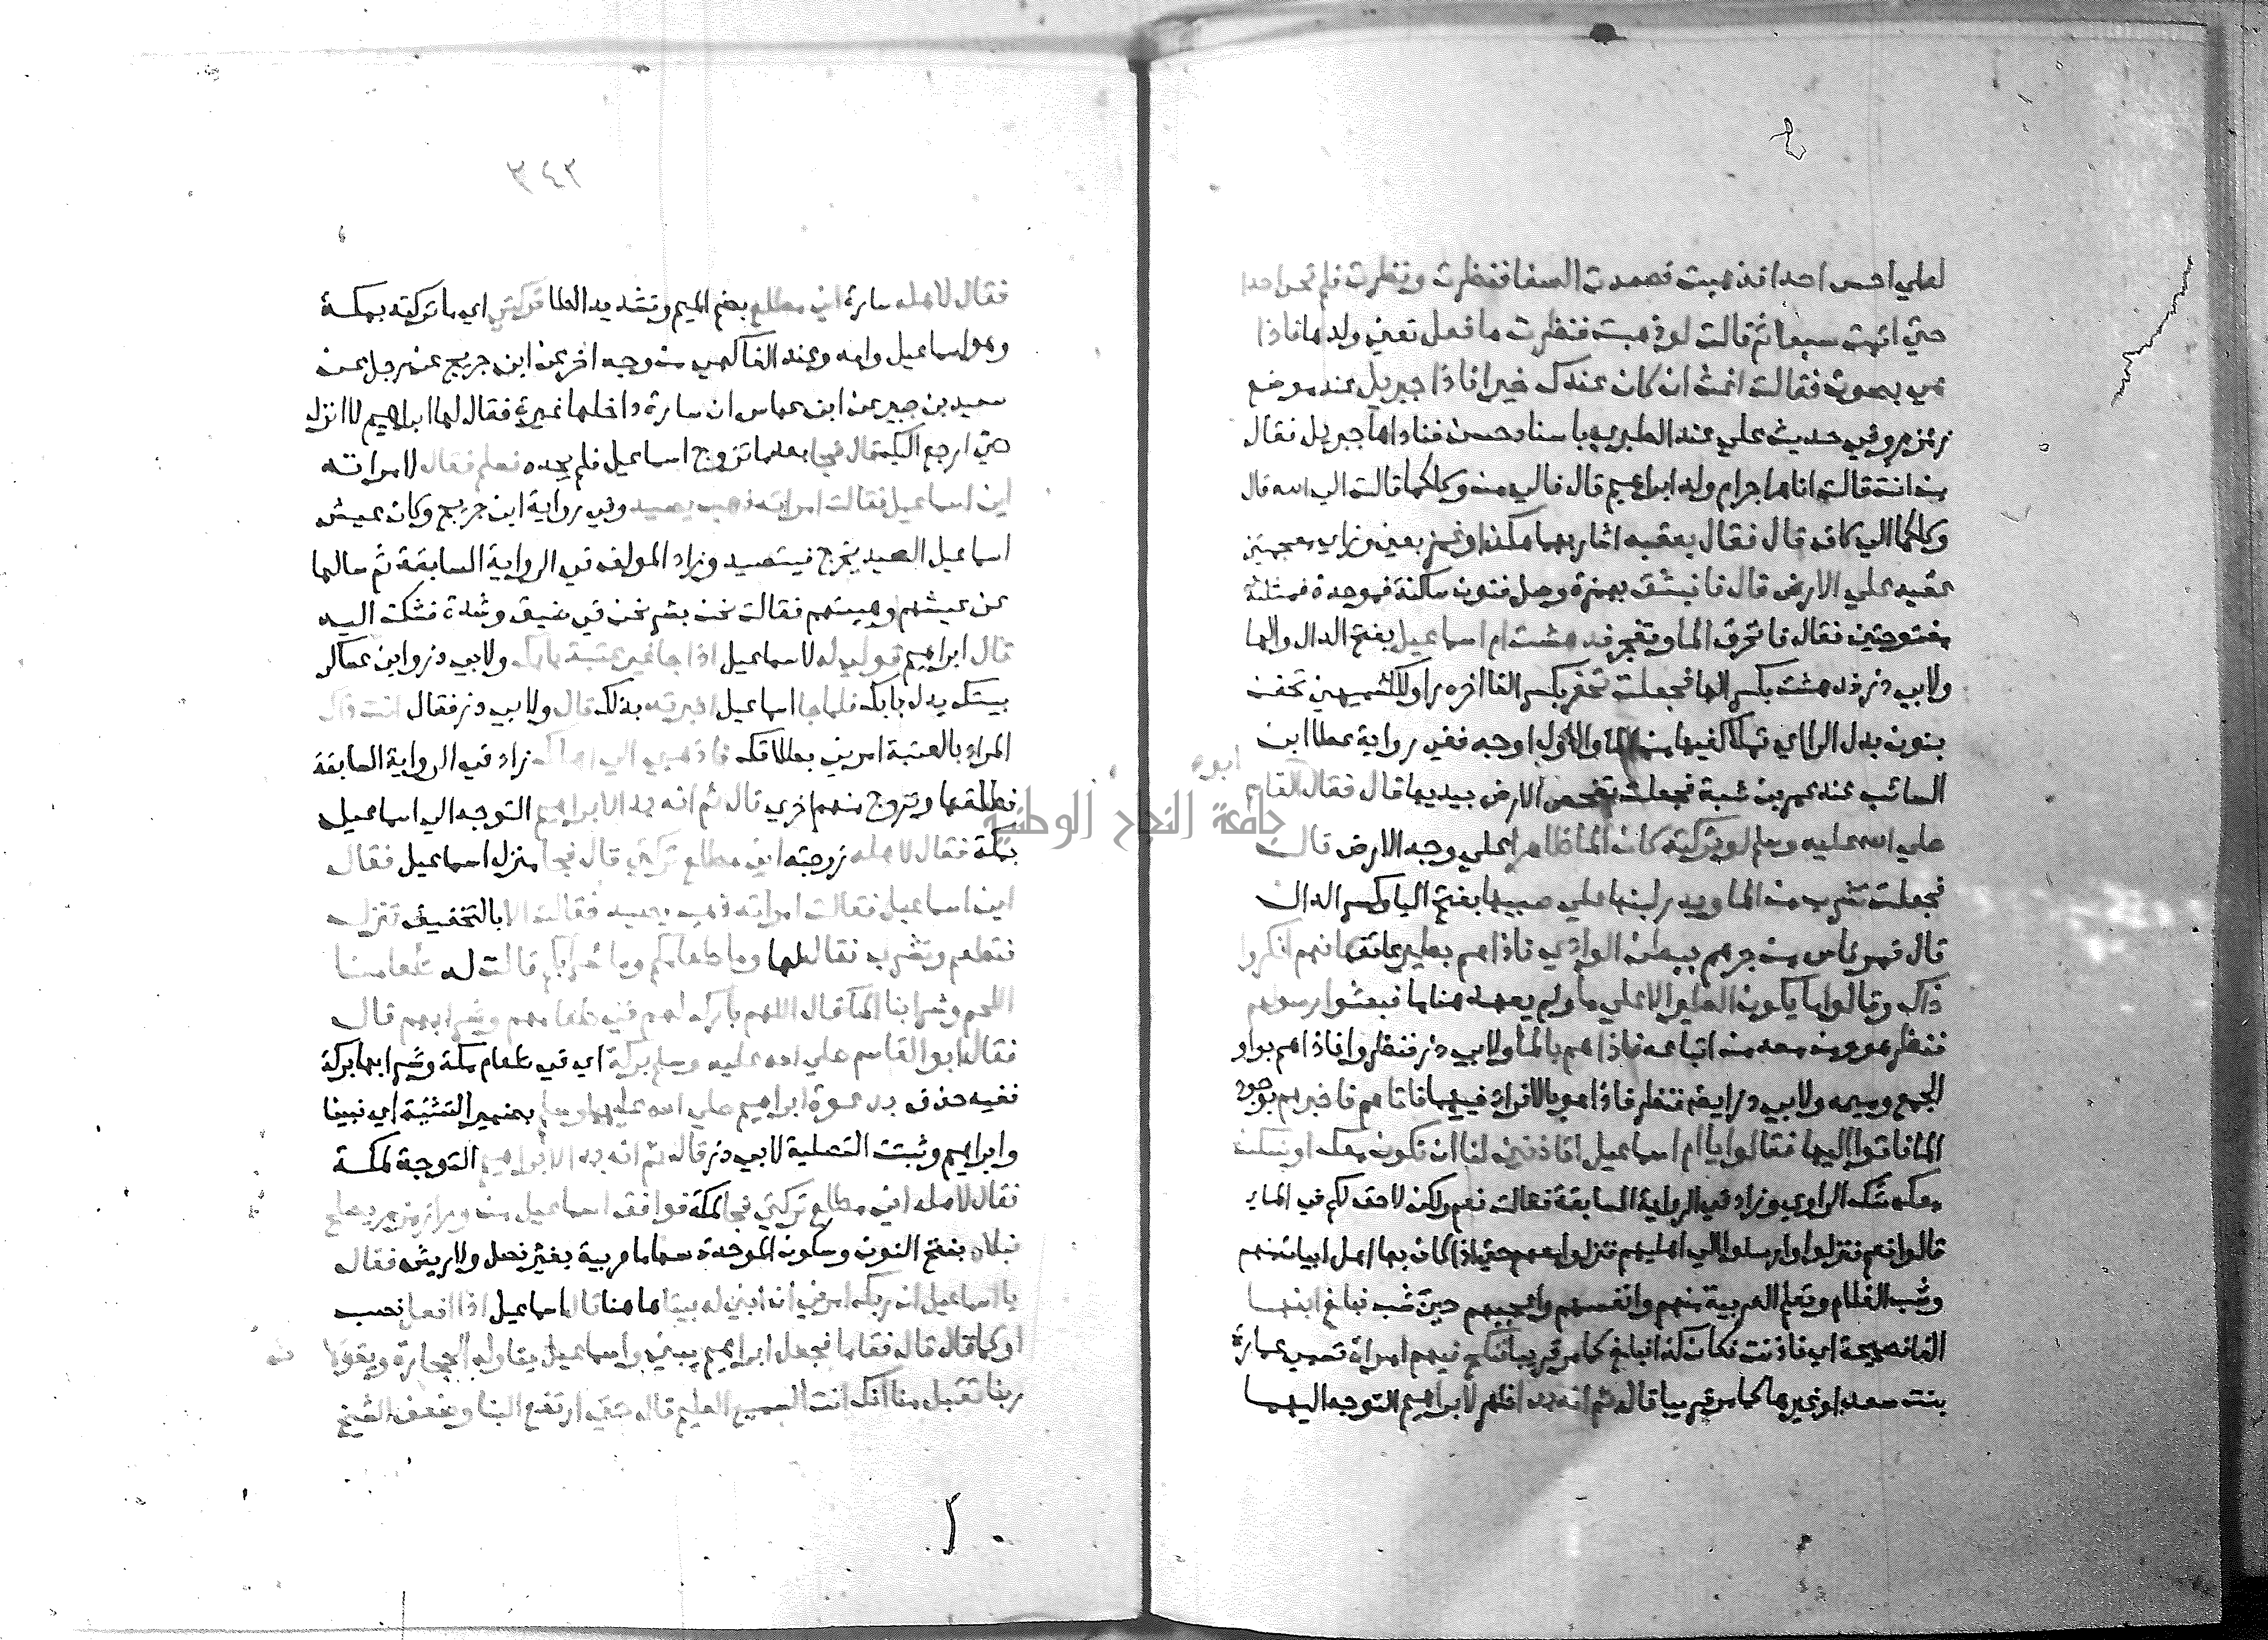 لعلي احس احدا فذهبت فصعدت الصفا فنظرت ونظرت فلم تحس احدا
حتي اتمت سبعا ثم قالت لو ذهبت فنظرت ما فعل تعني ولدها فاذا
هي بصوت فقالت اغث ان كان عندك خير فاذا جبريل عند موضع
زمزم وفي حديث علي عند الطبري باسناد حسن فناداها جبريل فقال
من انت قالت انا هاجر ام ولد ابراهيم قال فالي من وكلكما قالت الي الله قال
وكلكما الي كاف قال فقال بعقبه اشار بها هكذا وغمز بغين وزاي معجمتين
عقبه علي الارض قال فانبثق بهمزة وصل فنون ساكنة فموحدة فمثلثة
مفتوحتين فقاف فانخرق الما وتفجر فدهشت ام اسماعيل بفتح الدال والها
ولابي ذر فدهشت بكسر الها فجعلت تحفر بكسر الفا اخره را وللكشميهني تحفن
بنون بدل الراي تملا كفيها من الما والاول اوجه ففي رواية عطا ابن
السائب عند عمر بن شبة فجعلت تفحص الارض بيديها قال فقال ابو القاسم
صلي الله عليه وسلم لو تركته كان الما ظاهرا علي وجه الارض قال
فجعلت تشرب من الما ويدر لبنها علي صبيها بفتح اليا وكسر الدال
قال فمر ناس من جرهم ببطن الوادي فاذا هم بطير عائف كانهم انكروا
ذاك وقالوا ما يكون الطير الا علي ما ولم يعهد هنا ما فبعثوا رسولهم
فنظر هو ومن معه من اتباعه فاذا هم بالما ولابي ذر فنظروا فاذا هم بواو
الجمع وميمه ولابي ذر ايضا فنظر فاذا هو بالافراد فيهما فاتاهم فاخبرهم بوجود
الما فاتوا اليها فقالوا يا ام اسماعيل اتاذنين لنا ان نكون معك او نسكن
معك شك الراوي وزاد في الرواية السابقة فقالت نعم ولكن لا حق لكم في الما
قالوا نعم فنزلوا وارسلوا الي اهليهم فنزلوا معهم حتي اذا كان بها اهل ابيات منهم
وشب الغلام وتعلم العربية منهم وانفسهم واعجبهم حين شب فبلغ ابنها
الفا فصيحة اي فاذنت فكان كذا فبلغ كما مر قريبا فنكح فيهم امراة تسمي عمارة
بنت سعد او غيرها كما مر قريبا قال ثم انه بدا اظهر لابراهيم التوجه اليهما
٢٤٣
فقال لاهله سارة اني مطلع بضم الميم وتشديد الطا تركتي اي ما تركته بمكة
وهو اسماعيل وامه وعند الفاكهي من وجه اخر عن ابن جريج عن رجل عن
سعيد بن جبير عن ابن عباس ان سارة داخلها غيرة فقال لها ابراهيم لا انزل
حتي ارجع اليك قال فجا بعدما تزوج اسماعيل فلم يجده فسلم فقال لامراته
اين اسماعيل فقالت امراته ذهب يصيد وفي رواية ابن جريج وكان عيش
اسماعيل الصيد يخرج فيتصيد وزاد المولف في الرواية السابقة ثم سالها
عن عيشهم وهيئتهم فقالت نحن بشر نحن في ضيق وشدة فشكت اليه
قال ابراهيم قولي له لاسماعيل اذا جا غير عتبة بابك ولابي ذر وابن عساكر
بيتك بدل بابك فلما جا اسماعيل اخبرته بذلك قال ولابي ذر فقال انت ذاك
المراد بالعتبة امرني بطلاقك فاذهبي الي اهلك زاد في الرواية السابقة
فطلقها وتزوج منهم اخري قال ثم انه بدا لابراهيم التوجه الي اسماعيل
بمكة فقال لاهله زوجته اني مطلع تركتي قال فجا منزل اسماعيل فقال
اين اسماعيل فقالت امراته ذهب يصيد فقالت الا بالتخفيف تنزل
فتطعم وتشرب فقال لها وما طعامكم وما شرابكم قالت له طعامنا
اللحم وشرابنا الما قال اللهم بارك لهم في طعامهم وشرابهم قال
فقال ابو القاسم صلي الله عليه وسلم بركة اي في طعام مكة وشرابها بركة
ففيه حذف بدعوة ابراهيم صلي الله عليهما وسلم بضمير التثنية اي نبينا
وابراهيم وثبتت التصلية لابي ذر قال ثم انه بدا لابراهيم التوجه لمكة
فقال لاهله اني مطلع تركتي فجا لمكة فوافق اسماعيل من ورا زمزم يصلح
نبلا له بفتح النون وسكون الموحدة سهاما عربية بغير نصل ولا ريش فقال
يا اسماعيل ان ربك امرني ان ابني له بيتا هاهنا قال اسماعيل اذا افعل نصب
او كما قال قال فقاما فجعل ابراهيم يبني واسماعيل يناوله الحجارة ويقولا
ربنا تقبل منا انك انت السميع العليم قال حتي ارتفع البنا وضعف الشيخ
جامعة النجاح الوطنية